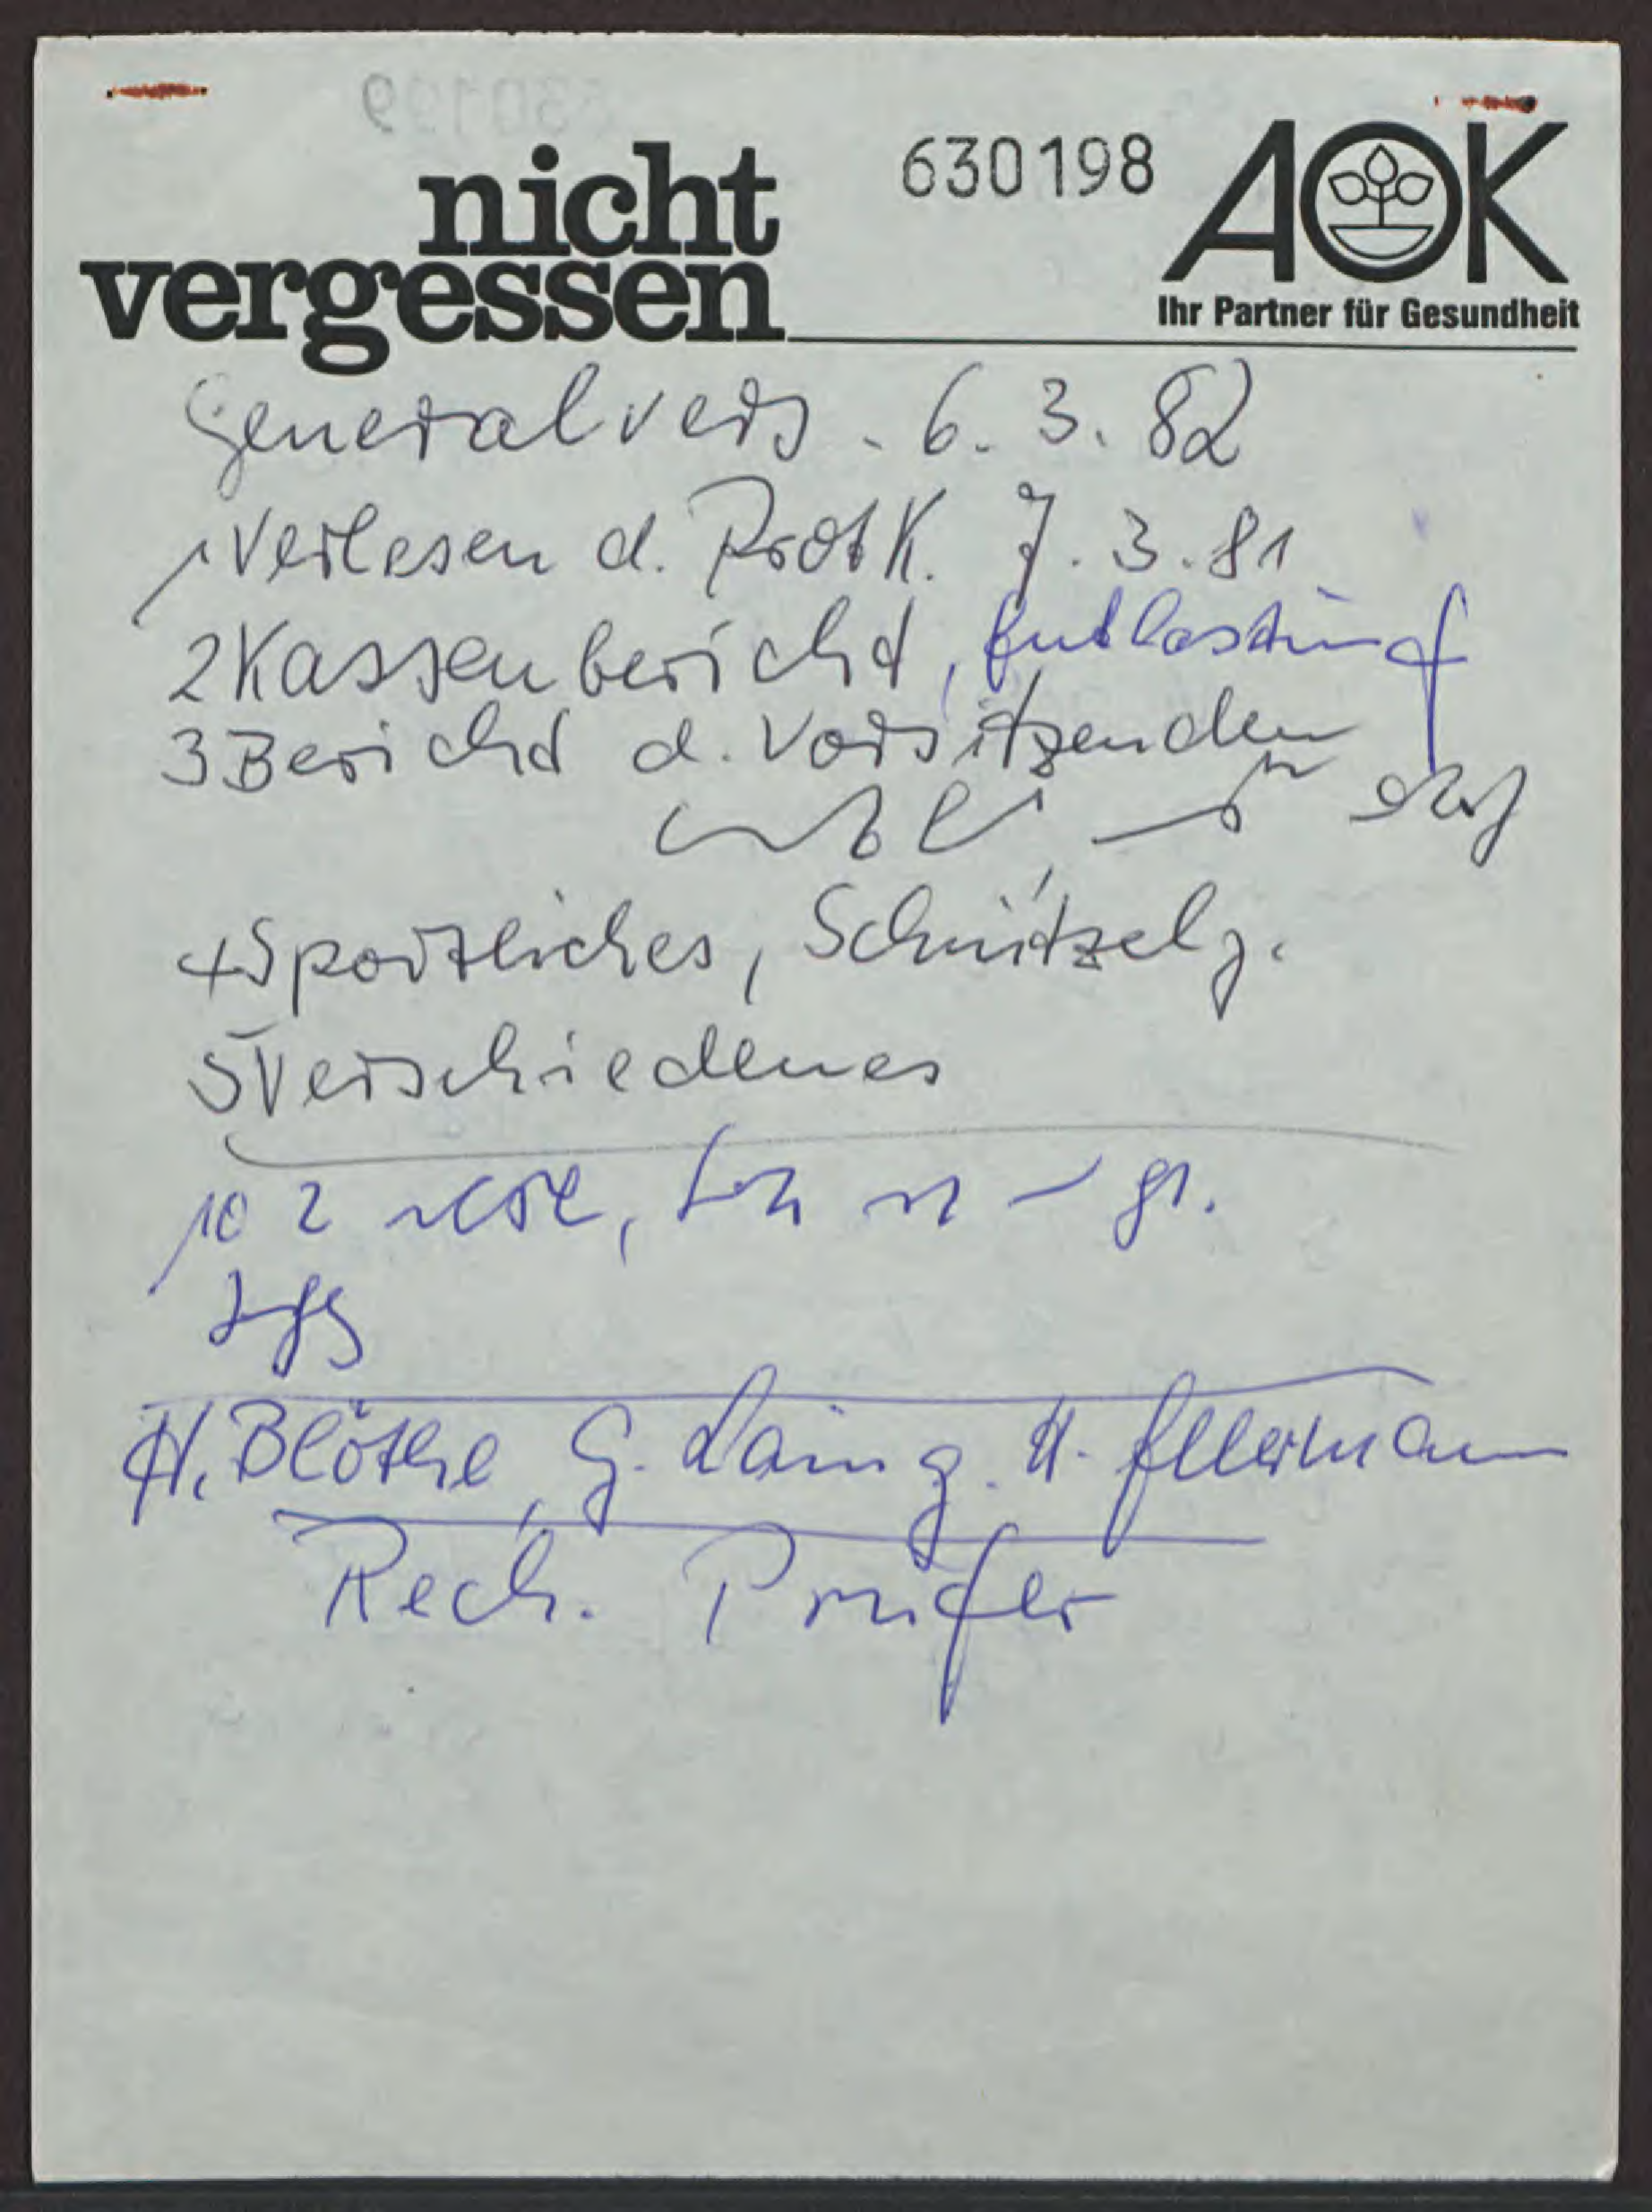 630199
nicht
vergessen
630198
AOK
Ihr Partner für Gesundheit
Generalvers. 6. 3. 82
1 Verlesen d. ProtK. 7. 3. 81
2 Kassenbericht, Entlastung
3 Bericht d. Vorsitzenden
4 Sportliches, Schnitzelj.
5 Verschiedenes
10 2
H. Blöthe, G. Laing. H. Ellermann
Rech. Prüfer